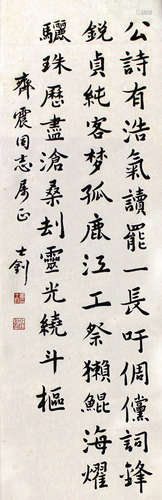 公詩有浩氣讀罷一長吁倜儻詞鋒
銳貞純客梦孤鹿江工祭獺鯤海耀
驪珠歷盡滄桑刦靈光繞斗樞
齊震同志屬正
士釗